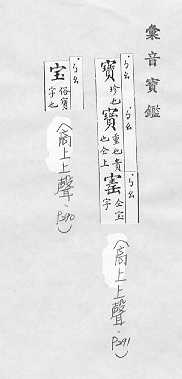 彙音寶鑑
ㄅㄠ
寶 珍也
ㄅㄠ
寶 重也貴也仝上
ㄅㄠ
寚 仝宝字
(高上上聲．P391)
ㄅㄠ
宝 俗寶字也
(高上上聲．P390)